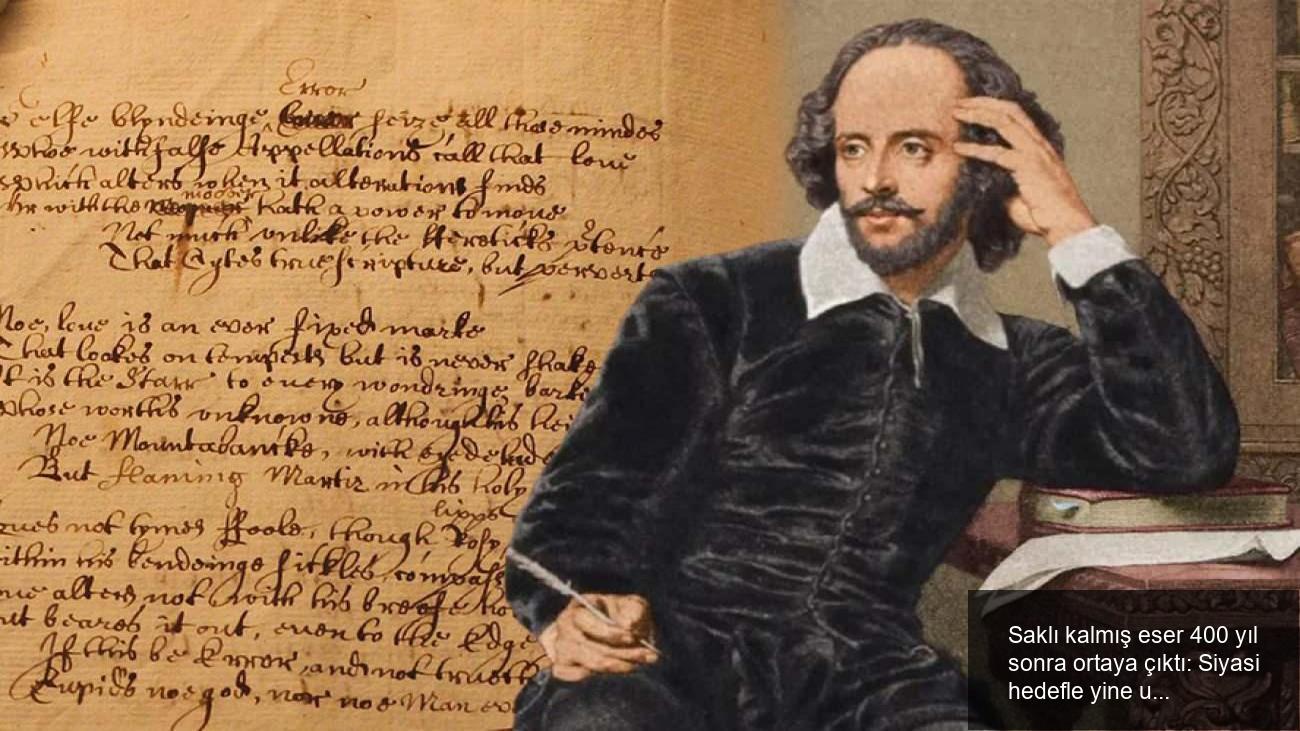 Error
elfe blyndeinge Error seize all those mindes
whoe with false Appellations call that love
which alters when it alterations finds
moover
or with the hath a power to move
Not much unlike the Hereticks pretence
That Cytes true scripture, but perverts
Noe, love is an ever fixed marke
That lookes on tempests but is never shake
It is the Starr to every wondringe barke
whose worths unknowne, although his hei
Noe Mountabancke, with eyedelude
But flaming Martir in his holy
lipps
not tymes Foole, though Rosy
within his bendeinge sickles, compass
alters not with his breefe ho
but beares it out, even to the Edge
If this be Error, and not trueth
Cupids noe god, nor noe Man ev
Saklı kalmış eser 400 yıl
sonra ortaya çıktı: Siyasi
hedefle yine u...